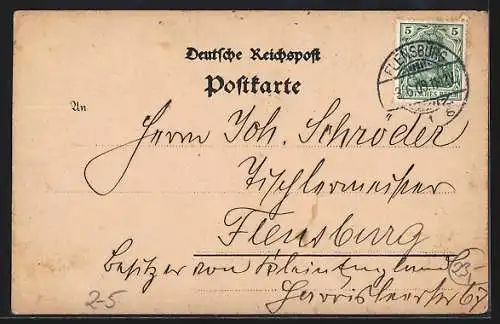 Deutsche Reichspost
Postkarte
An
5 5
FLENSBURG
Herrn Joh. Schröder
Tischlermeister
Flensburg
Besitzer von Klein England
2-5
67